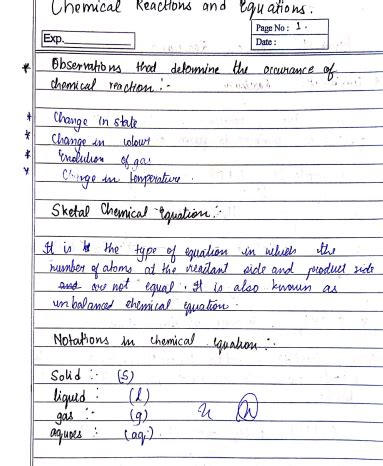 Chemical Reactions and Equations.
Page No: 1.
Exp.
Date:
* Observations that determine the occurance of
chemical reaction :-
* Change in state
* Change in colour
* Evolution of gas
* Change in temperature.
Sketal Chemical Equation :-
It is the type of equation in which the
number of atoms at the reactant side and product side
are not equal. It is also known as
unbalanced chemical equation.
Notations in chemical equation :-
Solid :- (s)
liquid :- (l)
gas :- (g)
aquoes : (aq.)